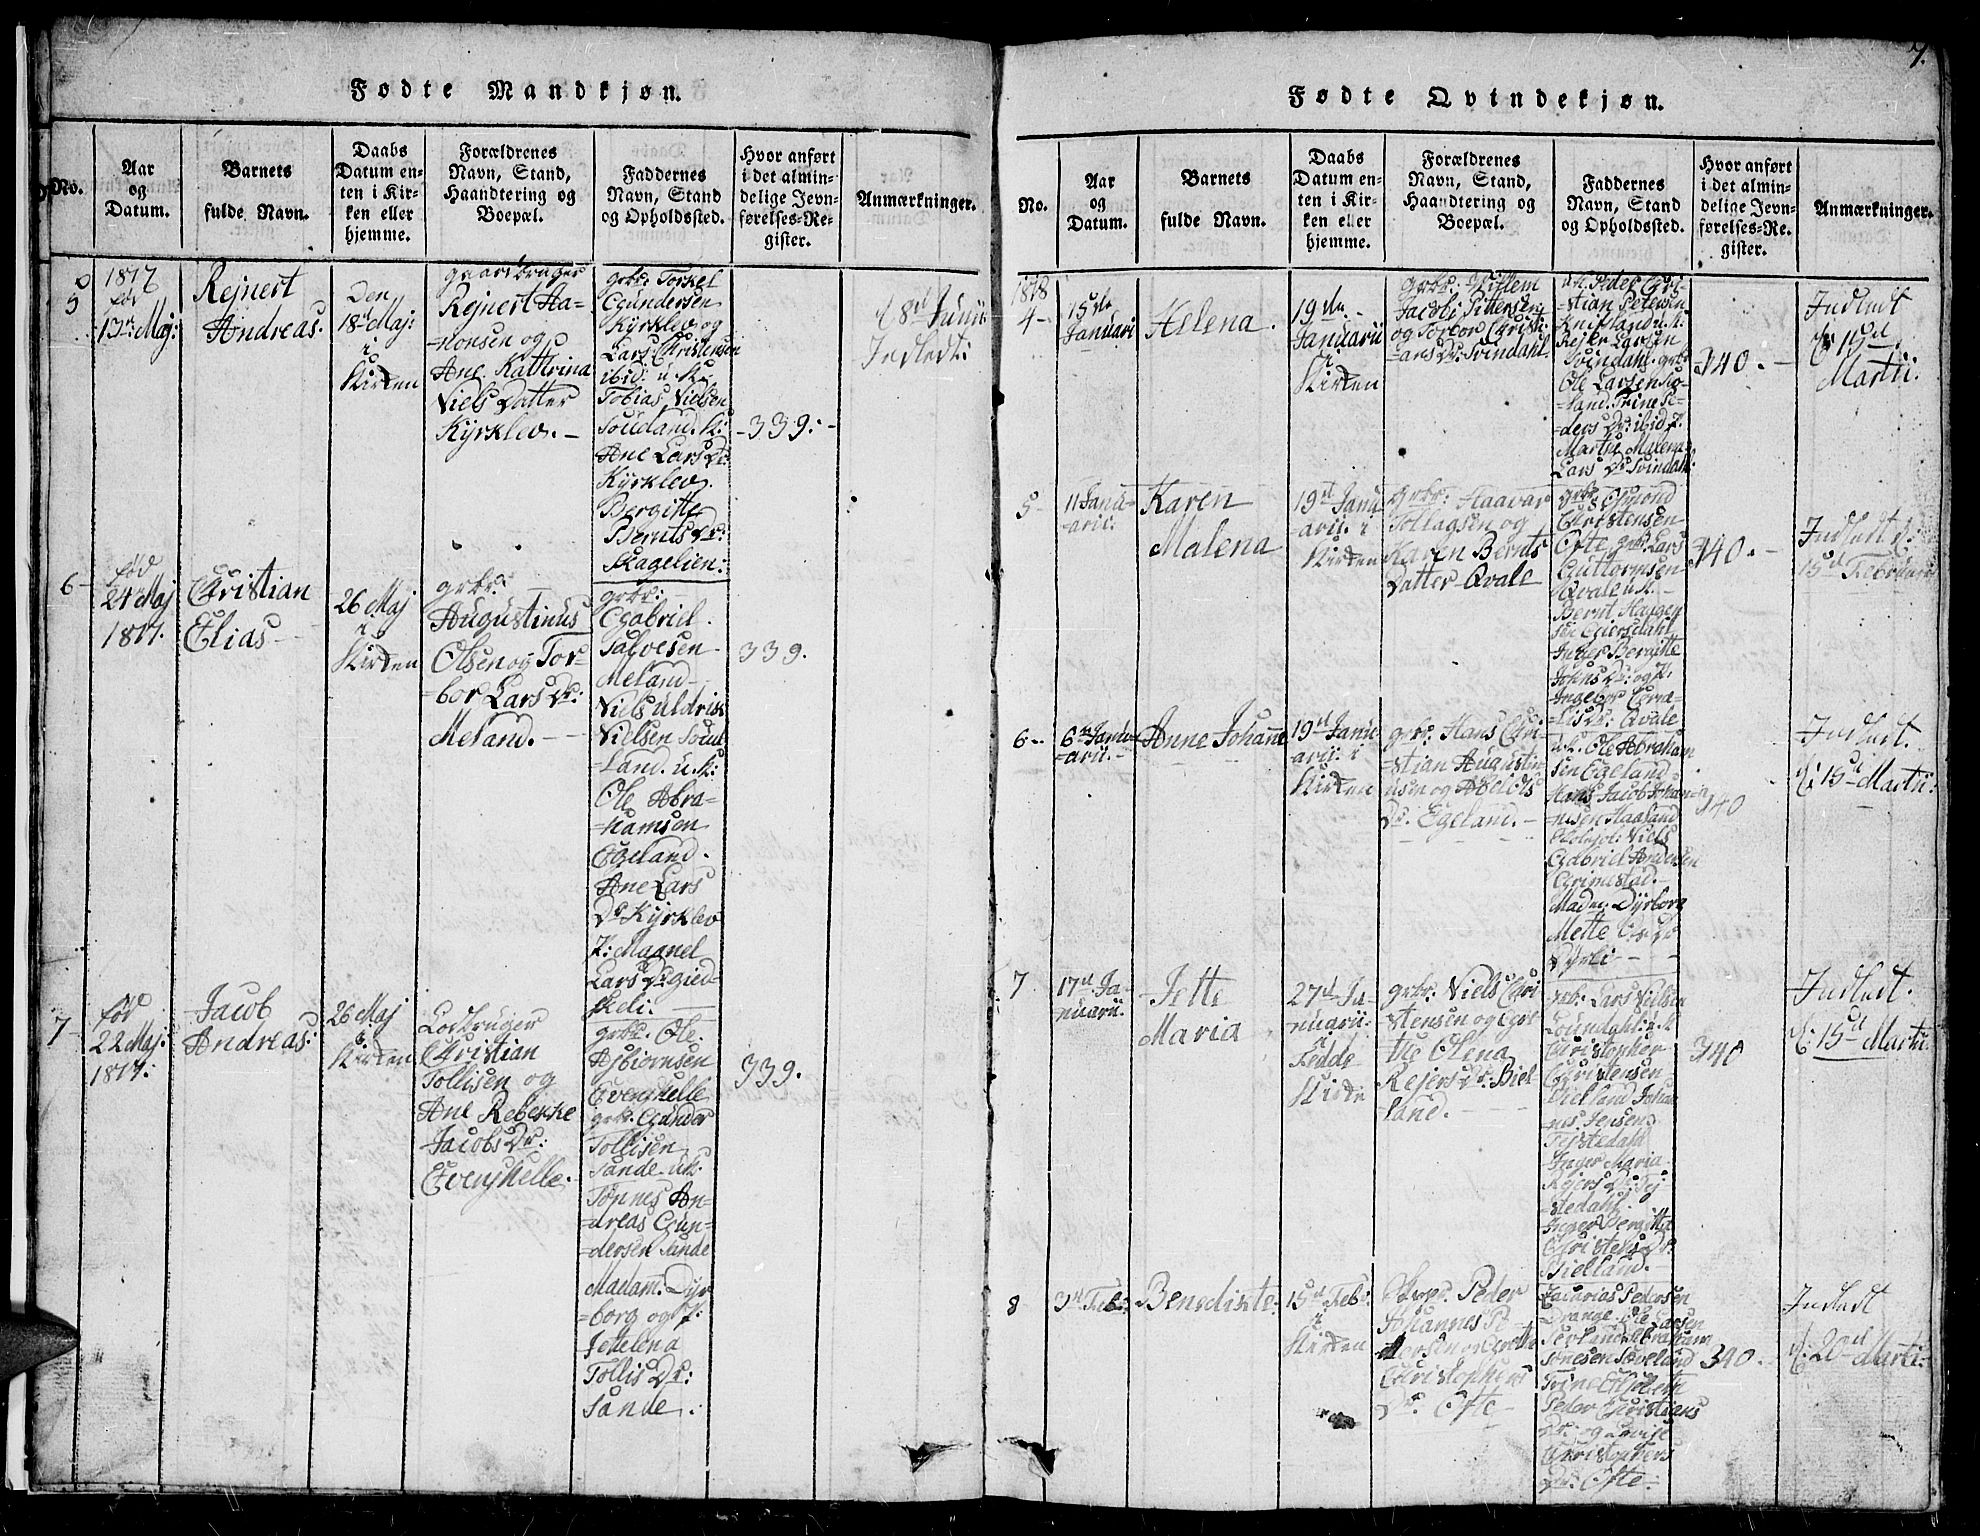 Fødte Mandkjøn.
No.
Aar
og
Datum.
Barnets
fulde Navn.
Daabs
Datum en-
ten i Kir-
ken eller
hjemme.
Forældrenes
Navn, Stand,
Haandtering og
Boepæl.
Faddernes
Navn, Stand
og Opholdssted.
Hvor anført
i det almin-
delige Jevn-
førelses-Re-
gister.
Anmærkninger.
5
1817
fød
13de Maj:
Rejnert
Andreas.
Den
18de Maj
i
Kirken
gaardbruger
Rejnert Ha-
=nonsen og
Ane Kathrina
Niels Datter
Kyrklev. -
grbr: Torkel
Gundersen
Kyrklev og
Lars Christensen
ibid: u.k:
Tobias Nielsen
Soudland. k:
Ane Lars Dr:
Kyrklev.
Bergitte
Bernts Dr:
Skagelien:
-339:-
d 8de Junii
Indledt:
6-
fød
24 Maj
1817.
Christian
Elias
26 Maj
i
Kirken
grbr:
Augustinus
Olsen og Tor-
=bor Lars Dr:
Meland. -
grbr:
Gabriel
Salvesen
Meland
Niels Uldrik
Nielsen Soud
=land. u.k:
Ole Abra-
=hamsen
Egeland.
Ane Lars
Dr Kyrklev
K: Magnel
Lars Dr Gied-
skeli:
339.
7-
fød
22 Maj:
1817:
Jacob
Andreas:
26 Maj
i
Kirken
Lodbruger
Christian
Tollisen og
Ane Rebekke
Jacobs Dr:
Evenshelle.
grbr. Ole
Asbiornsen
Evenshelle
grbr. Gunder
Tollisen
Sande. u.k:
Tønnes An-
=dreas Gun-
=dersen Sande
Madam. Dyr
=borg og P:
Jettelena
Tollis Dr:
Sande.
339.
7.
Fødte Qvindekjøn.
No.
Aar
og
Datum.
Barnets
fulde Navn.
Daabs
Datum en-
ten i Kir-
ken eller
hjemme.
Forældrenes
Navn, Stand,
Haandtering og
Boepæl.
Faddernes
Navn, Stand
og Opholdssted.
Hvor anført
i det almin-
delige Jevn-
førelses-Re-
gister.
Anmærkninger.
1818
4-
15de
Januari
Helena.
19de
Januarii
i
Kirken
grbr: Willem
Jacob Pittersen
og Torbor Christi-
=ans Dr: Svindahl
u.k. Peder Chri-
=stian Petersen
Knibland u.k:
Rejer Larsen
Svindahl. grbr
Ole Larsen
=land. Trine Pe-
=ders Dr: ibid P.
Marthe Malena
Lars Dr Svindahl.
340. -
Indledt
d: 15de
Martii:
5-
11 Janu-
=arii:
Karen
Malena
19de Janu
=arii: i
Kirken
grbr: Haavar
Tollagsen og
Karen Bernts
Datter Qvale
grbr: Osmond
Christensen
Ofte grbr Lars
Guttormsen
Qvale u.k.
Bernt Haagen
sen Giersdahl
Inger Bergitte
Johns Dr: og P.
Ingebor Corne-
=lis Dr: Qvale
340. -
Indledt d:
15de Februarii
6-
6te Janu-
=arii. -
Anne Johanne
19de Janu
=arii: i
Kirken
grbr: Hans Chri-
=stian Augustin
usen og Abel Ols
Dr. Egeland. -
u.k. Ole Abraham
sen Egeland
Hans Jacob Johan-
nisen Haaland
Niels
Gabriel Andersen
Grimestad. -
Madm: Dyrborg
Mette
Dyrli
340
Indledt.
d: 15de Martii:
7
17de Ja-
=nuarii.
Jette
Maria
27de Ja-
=nuarii:
i
Fedde
Kirke
grbr. Niels Chri
stensen og Gret
the Olena
Rejers Dr. Biel
=land.
grbr: Lars Nielsen
Loundahl: u.k
Christopher
Christensen
Bielland Johan
nes Jensen
Tejstedald
Inger Maria
Rejers Dr: Tej
stedahl.
Inger Bergitte
Christens Dr:
Bielland. -
340
Indledt.
d: 15de Martii:
8
3de Feb:
Benedikte:
15de Feb:
i
Kirken
Peder
Johannes P
dersen og Grethe
Christophers
Dr. Ofte
Zacarias Pedersen
Drange Ole Larsen
Abraham
Tønesen Søveland
Trine Elisabeth
Peder Christians
Dr: og Lovise
Christophers
Dr: Ofte:
340.
Indledt
d: 20de Marti: